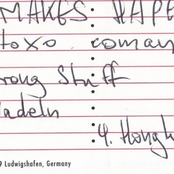 MAKES : HAPE
toxo. coman
rong Stuff
ladeln
9 Ludwigshafen, Germany